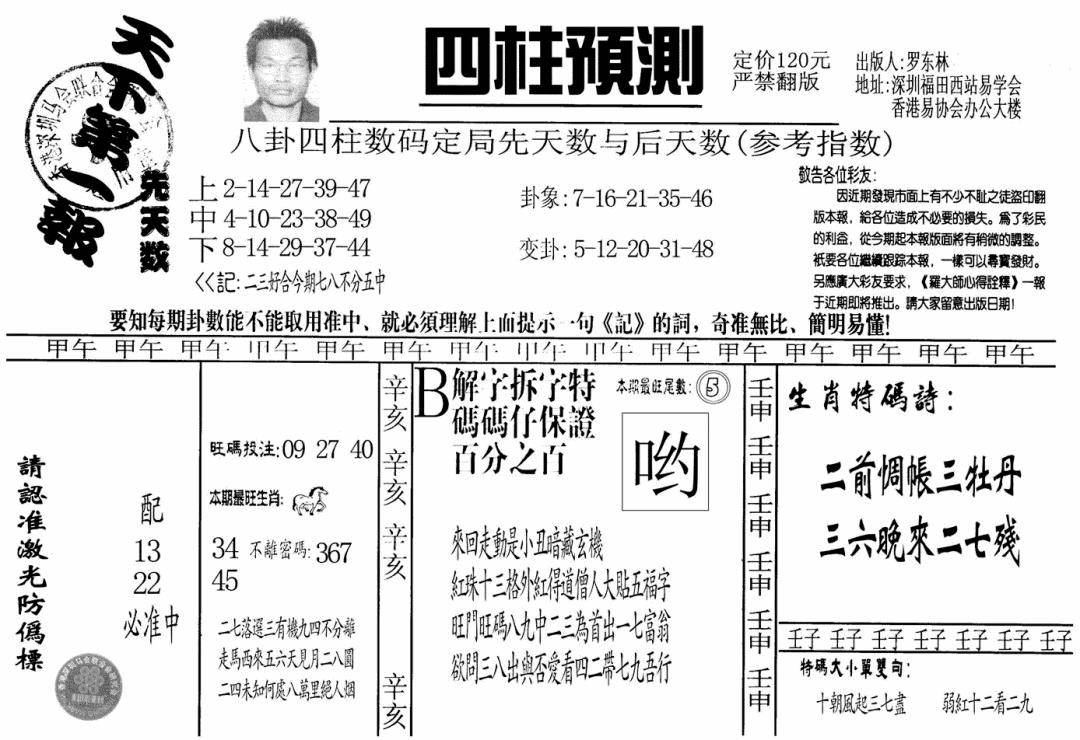 天下第一報
四柱預測
定价120元
严禁翻版
出版人:罗东林
地址:深圳福田西站易学会
香港易协会办公大楼
八卦四柱数码定局先天数与后天数(参考指数)
先天数
上2-14-27-39-47
中4-10-23-38-49
下8-14-29-37-44
<<記:二三好合今期七八不分五中
卦象:7-16-21-35-46
变卦:5-12-20-31-48
敬告各位彩友:
因近期發現市面上有不少不耻之徒盜印翻
版本報,給各位造成不必要的損失。為了彩民
的利益,從今期起本報版面將有稍微的調整。
衹要各位繼續跟踪本報,一樣可以尋寶發財。
另應廣大彩友要求,《羅大師心得詮釋》一報
于近期即將推出。請大家留意出版日期!
要知每期卦數能不能取用准中、就必須理解上面提示一句《記》的詞,奇准無比、簡明易懂!
甲午 甲午 甲午 甲午 甲午 甲午 甲午 甲午 甲午 甲午 甲午 甲午 甲午 甲午 甲午
請認准激光防僞標
配
13
22
必准中
旺碼投注:09 27 40
本期最旺生肖:
34 不離密碼:367
45
二七落選三有機九四不分離
走馬西來五六天見月二八圓
二四未知何處八萬里絕人烟
辛亥
辛亥
辛亥
辛亥
B解字拆字特
碼碼仔保證
百分之百
本期最旺尾數:5
哟
來回走動是小丑暗藏玄機
紅珠十三格外紅得道僧人大貼五福字
旺門旺碼八九中二三為首出一七富翁
欲問三八出與否愛看四二帶七九吾行
壬申
壬申
壬申
壬申
壬申
壬申
生肖特碼詩:
二前惆帳三牡丹
三六晚來二七殘
壬子 壬子 壬子 壬子 壬子 壬子 壬子
特碼大小單雙句:
十朝風起三七盡 弱紅十二看二九